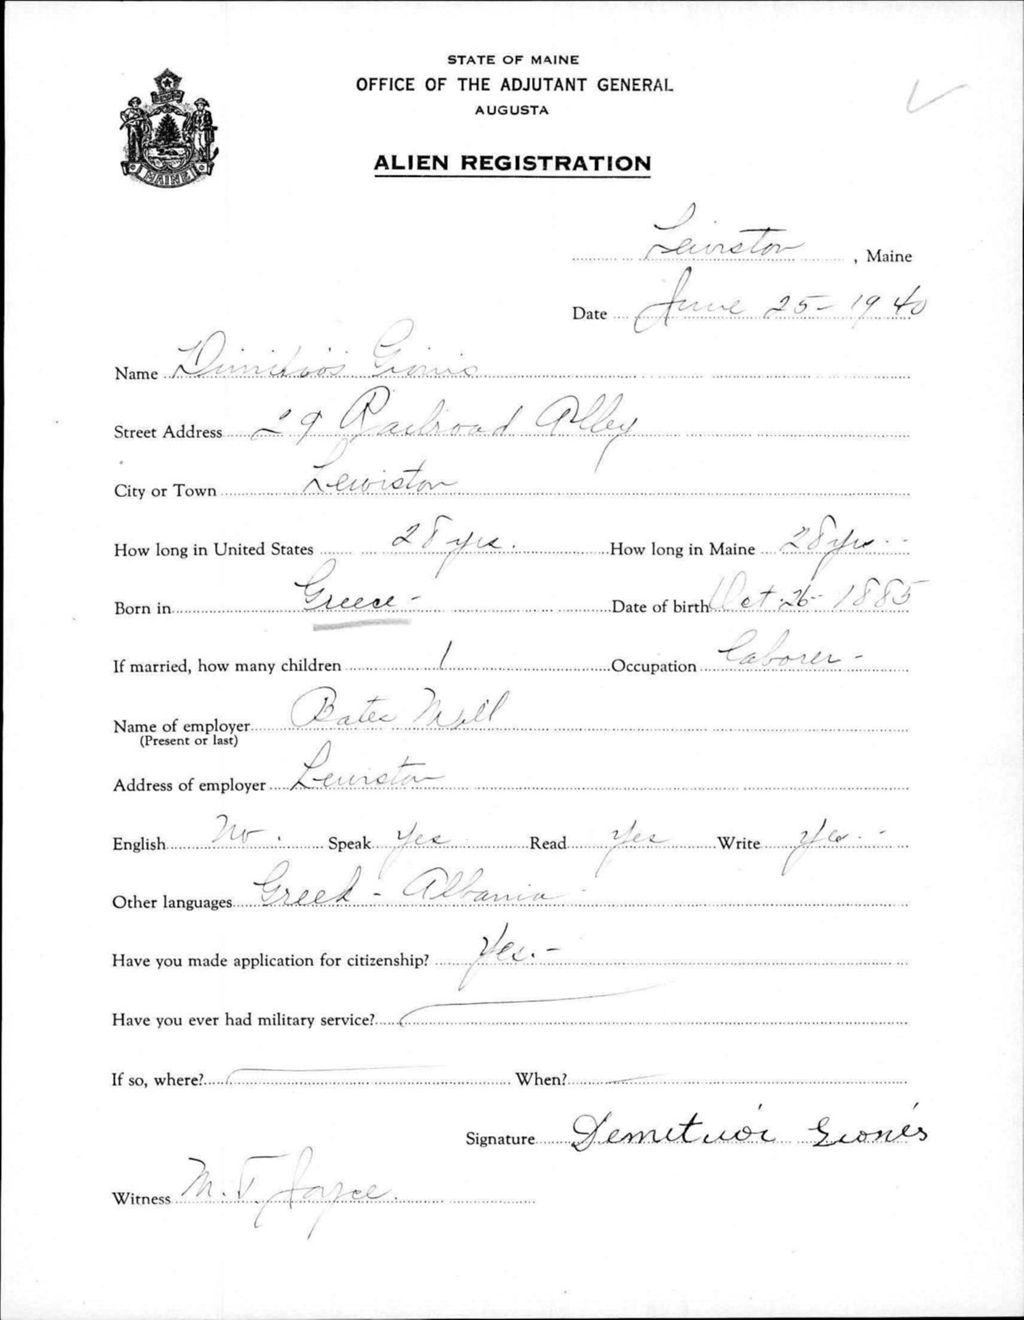 STATE OF MAINE
OFFICE OF THE ADJUTANT GENERAL
AUGUSTA
MAINE
ALIEN REGISTRATION
Lewiston, Maine
Date June 25-1940
Name Dimitrios Gionis
Street Address 29 Railroad Alley
City or Town Lewiston
How long in United States 28 yrs. How long in Maine 28 yrs.
Born in Greece - Date of birth Oct 26-1885
If married, how many children 1 Occupation laborer -
Name of employer Bates Mill
(Present or last)
Address of employer Lewiston
English No. Speak Yes Read Yes Write Yes. -
Other languages Greek - Albania
Have you made application for citizenship? Yes. -
Have you ever had military service?
If so, where? When?
Signature Demetrios Giones
Witness M. T. Joyce.